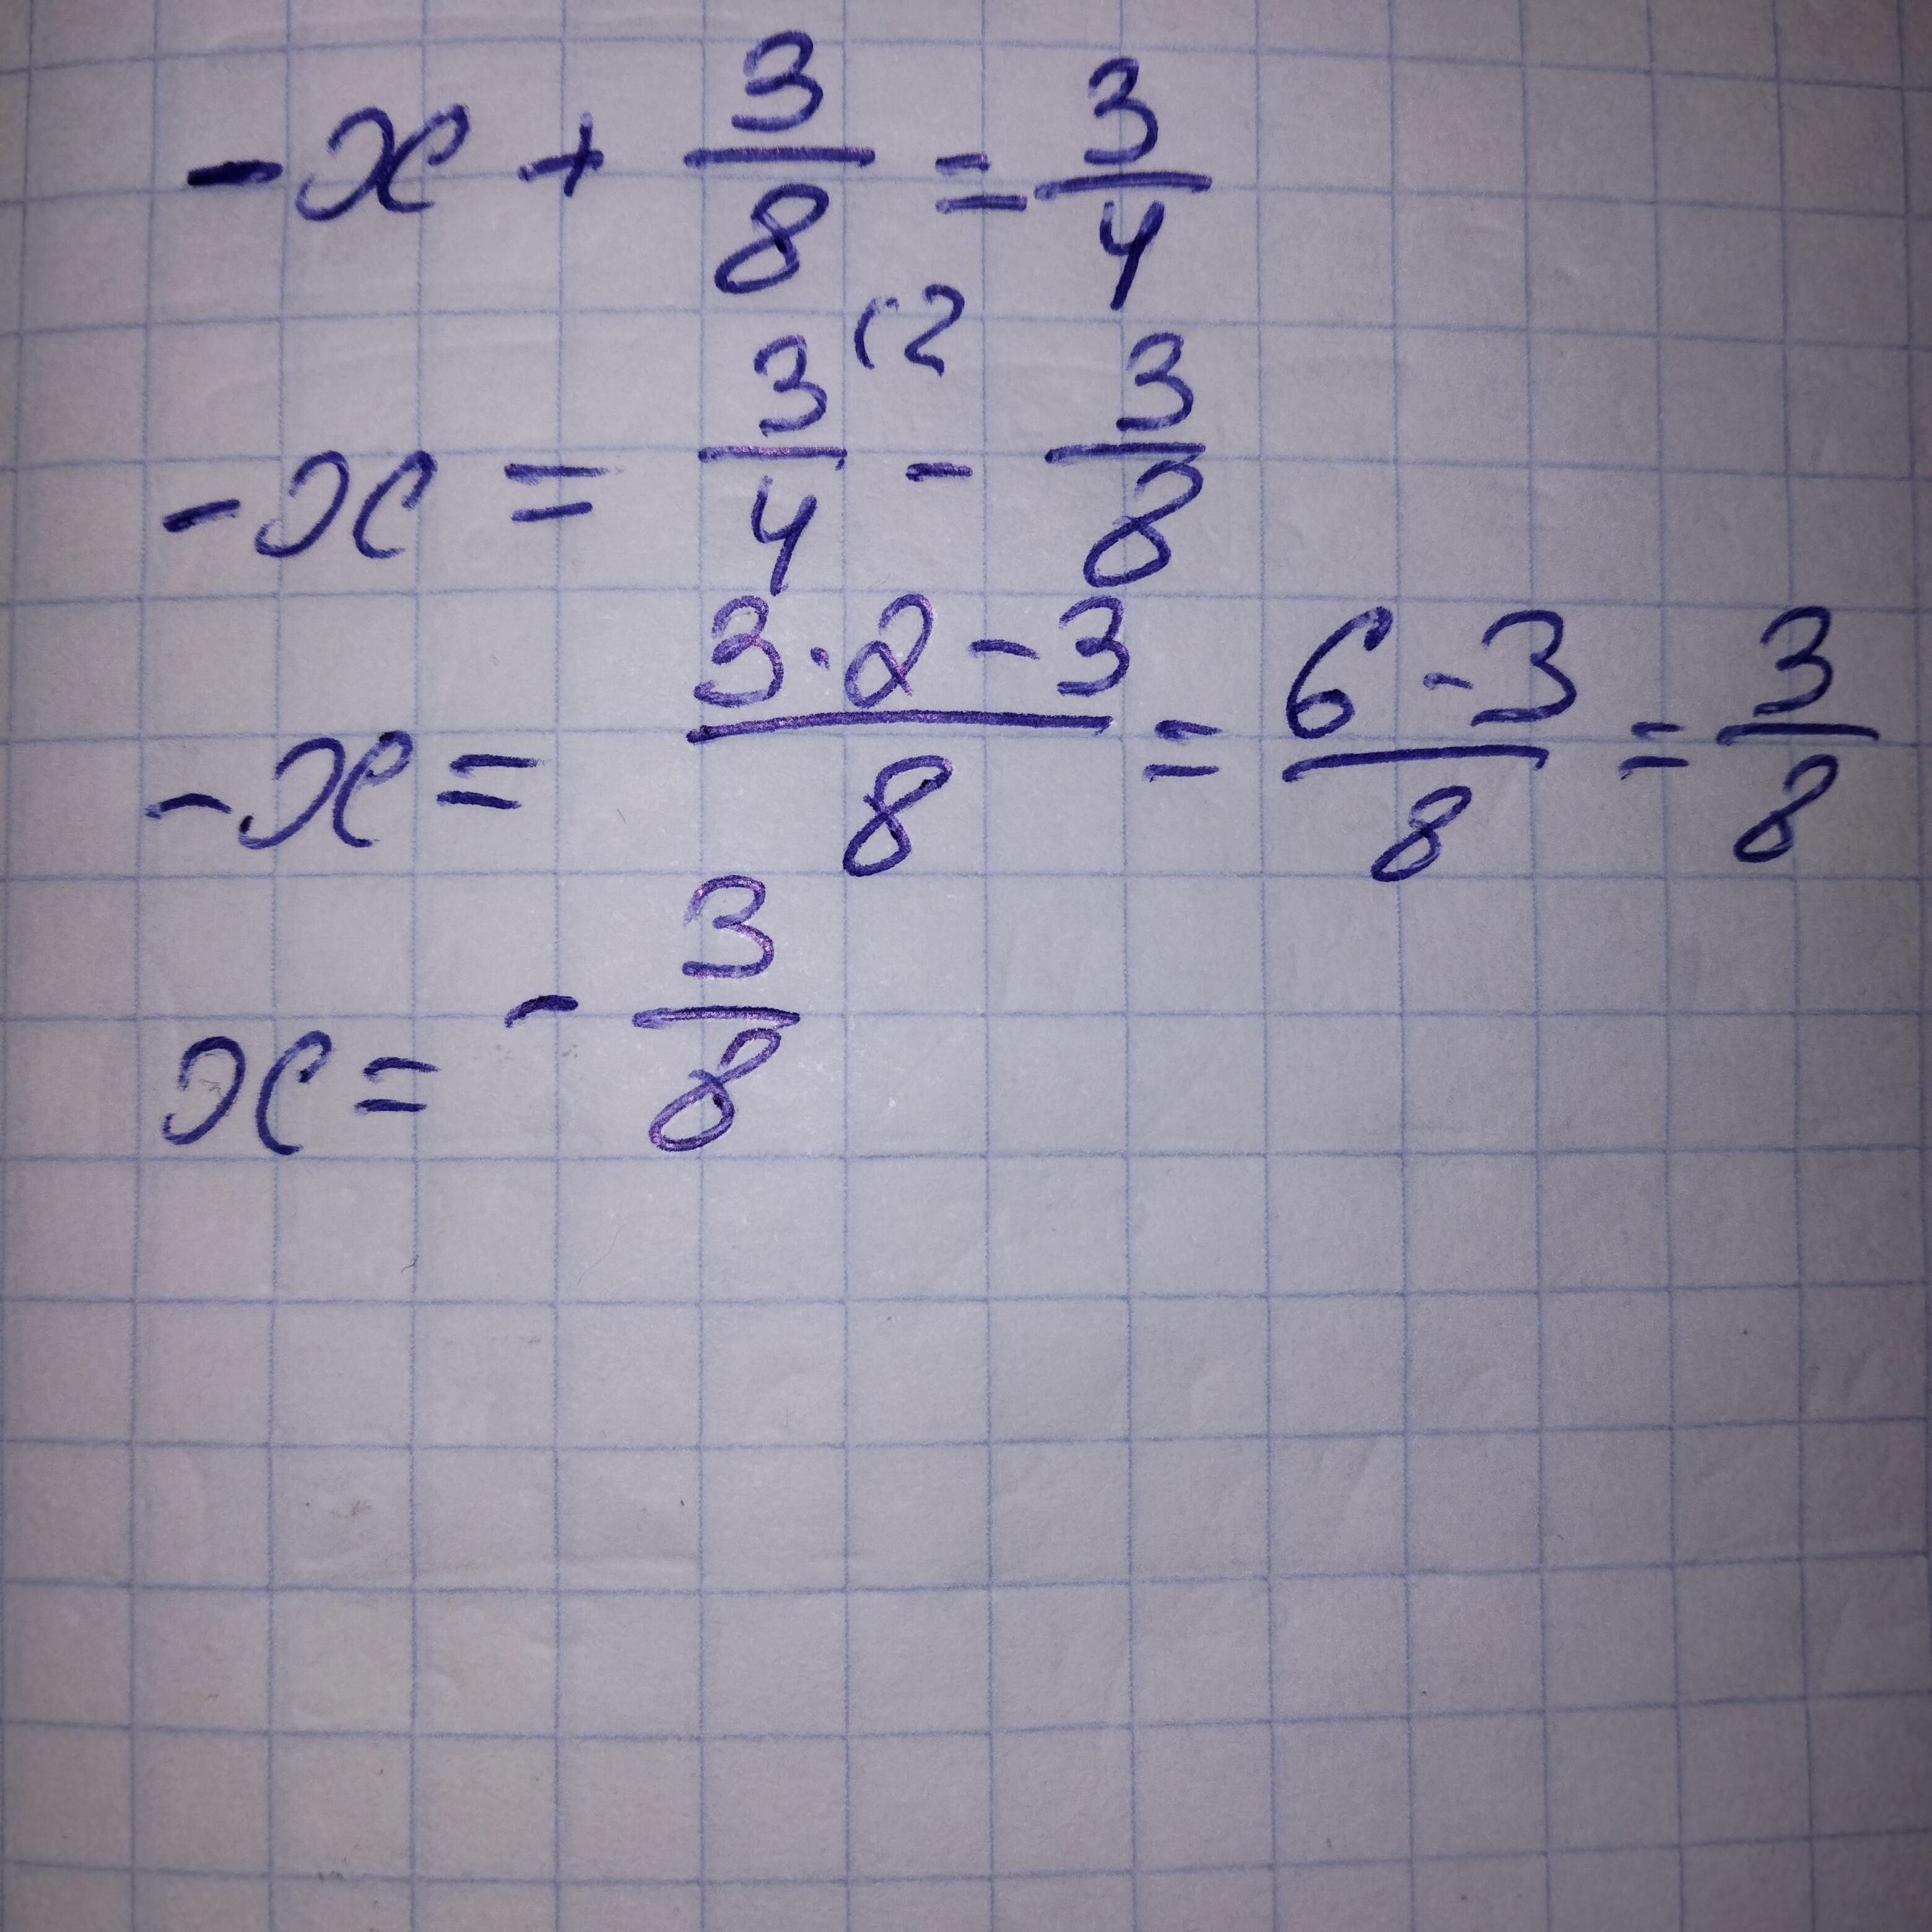 -x + 3/8 = 3/4
-x = 3/4 (2 - 3/8
-x = 3·2-3/8 = 6-3/8 = 3/8
x = - 3/8